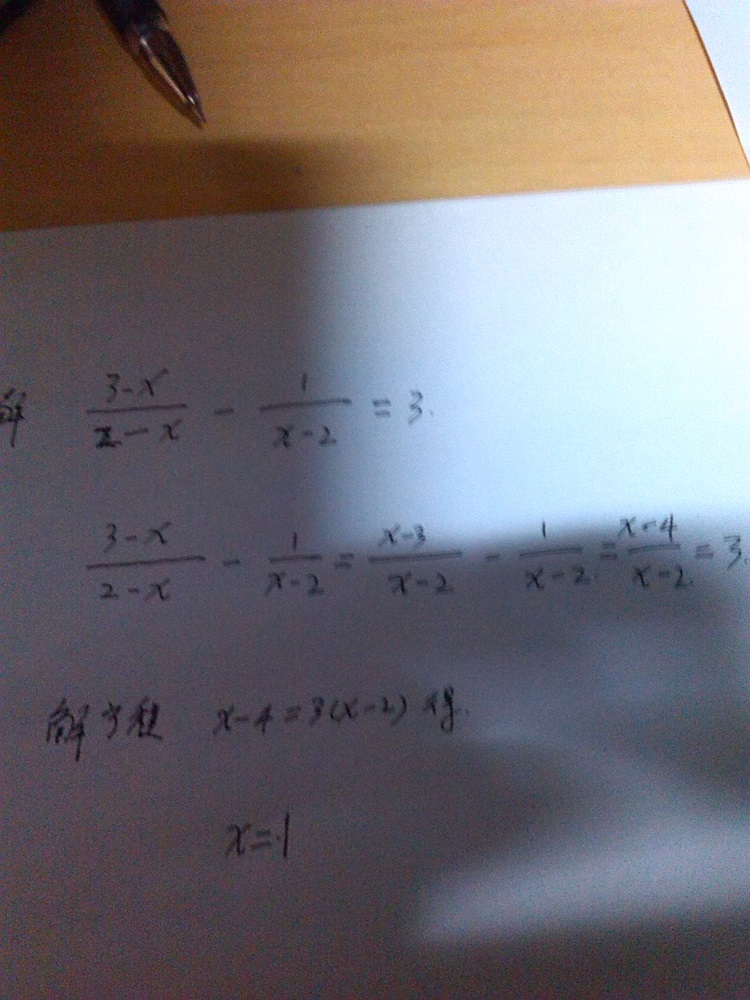 解 (3-x)/(2-x) - 1/(x-2) = 3.
(3-x)/(2-x) - 1/(x-2) = (x-3)/(x-2) - 1/(x-2) = (x-4)/(x-2) = 3.
解方程 x-4=3(x-2) 得.
x=1